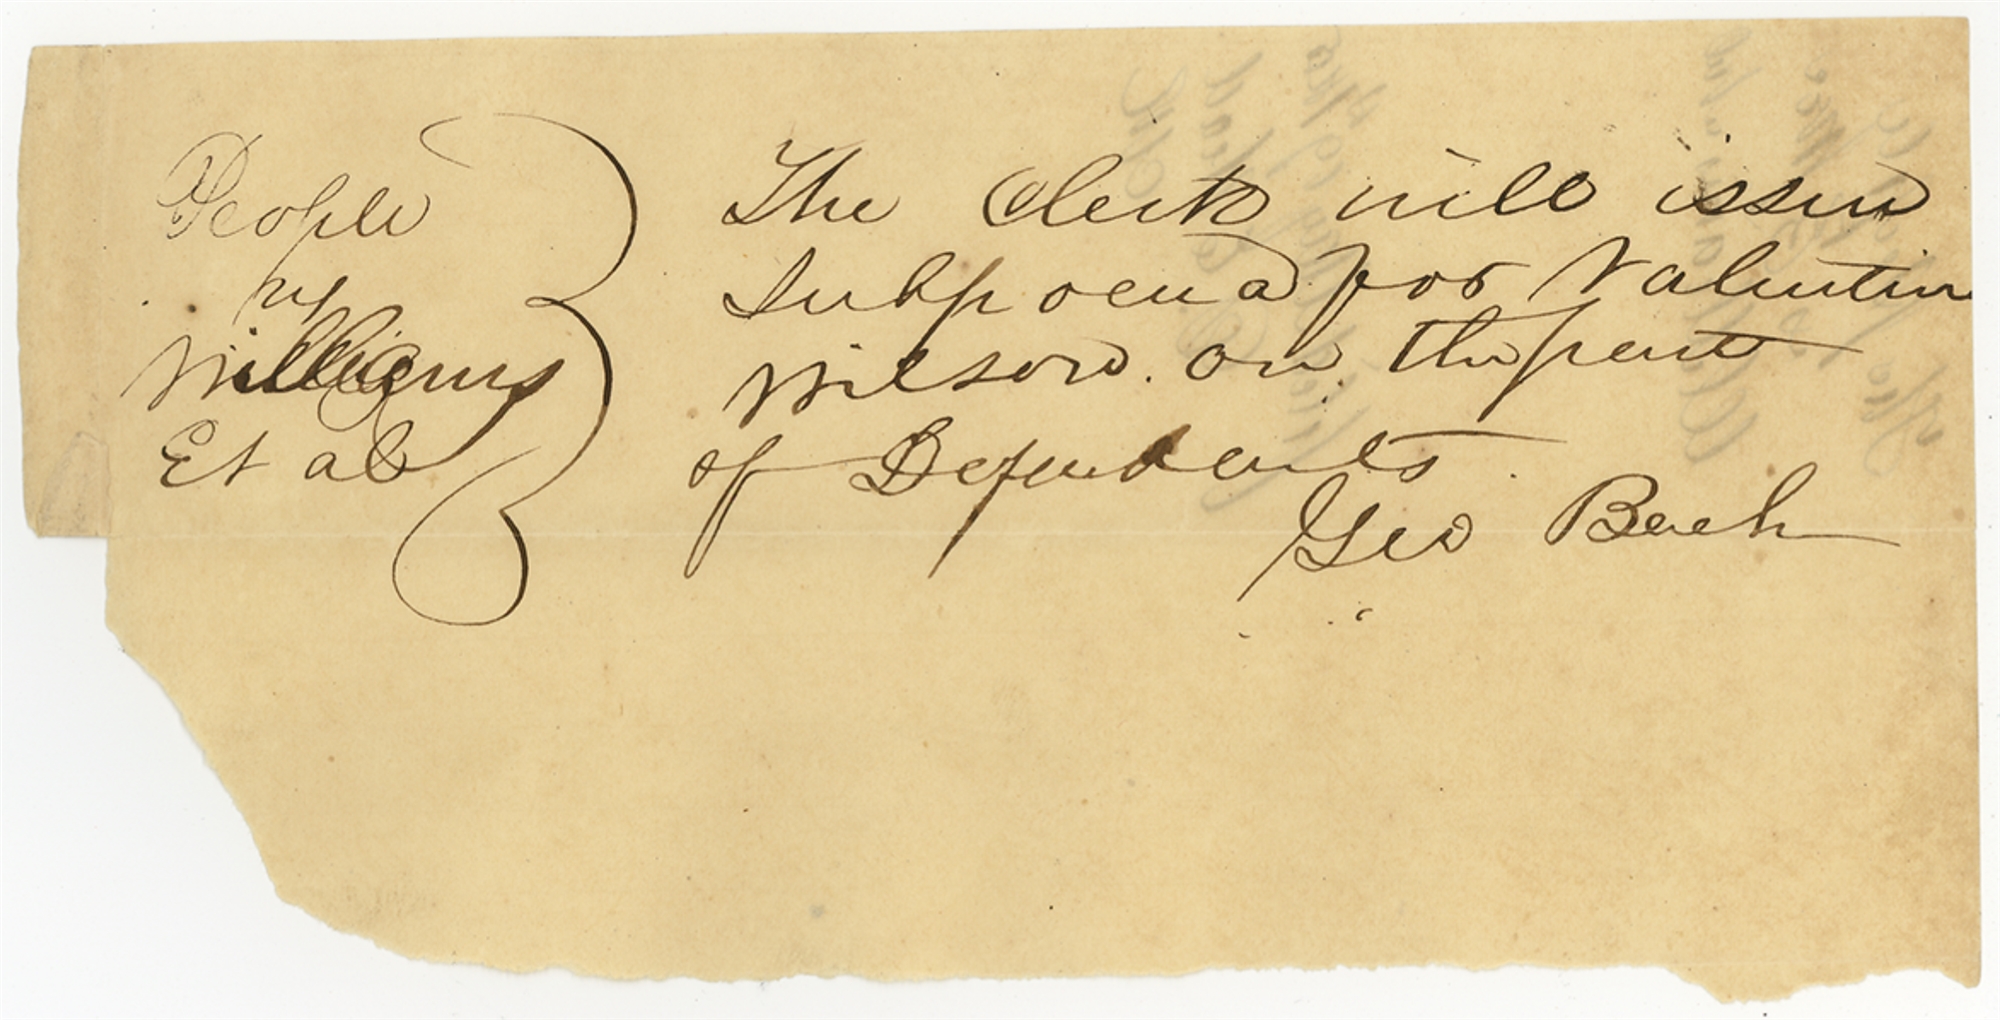 People
vs
Williams
Et al
The Clerk will issue
Subpoena for Valentin
Wilson. on the part
of Defendants.
Geo Bach